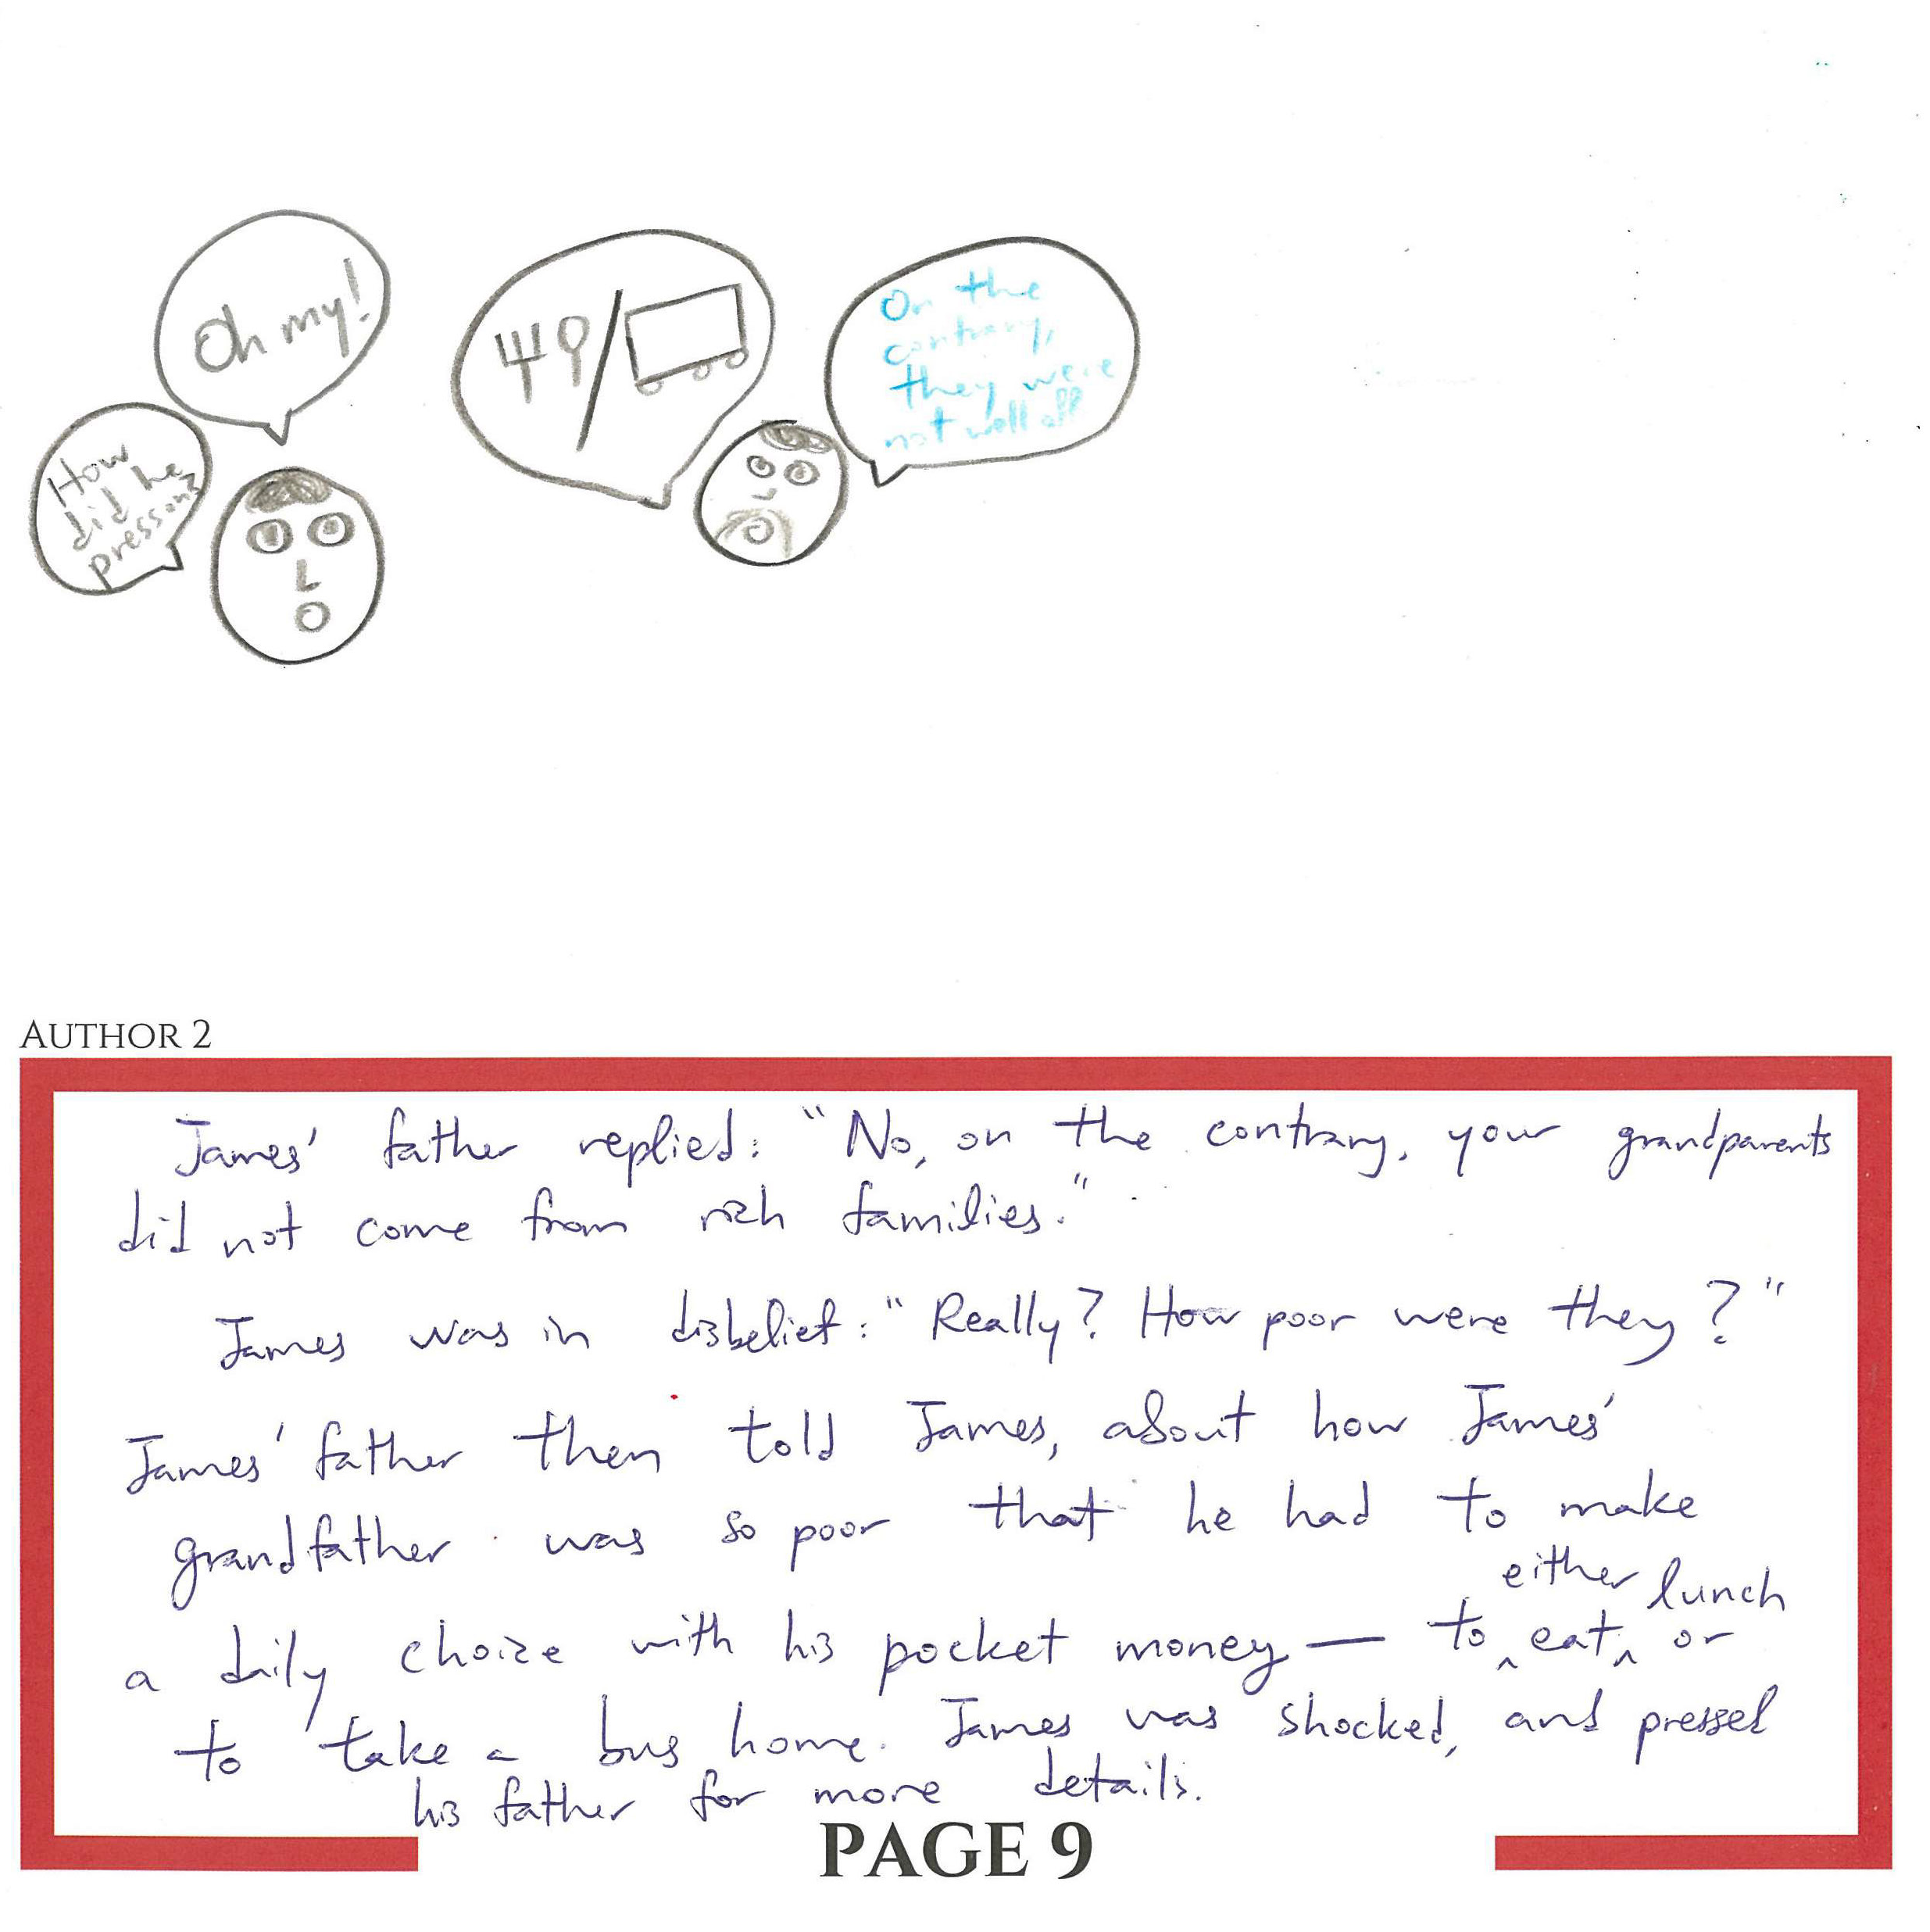 Oh my!
How
did he
press on?
On the
contrary,
they were
not well off
AUTHOR 2
James' father replied: "No, on the contrary, your grandparents
did not come from rich families."
James was in disbelief: "Really? How poor were they?"
James' father then told James, about how James'
grandfather was so poor that he had to make
a daily choice with his pocket money — to either eat lunch or
to take a bus home. James was shocked, and pressed
his father for more details.
PAGE 9